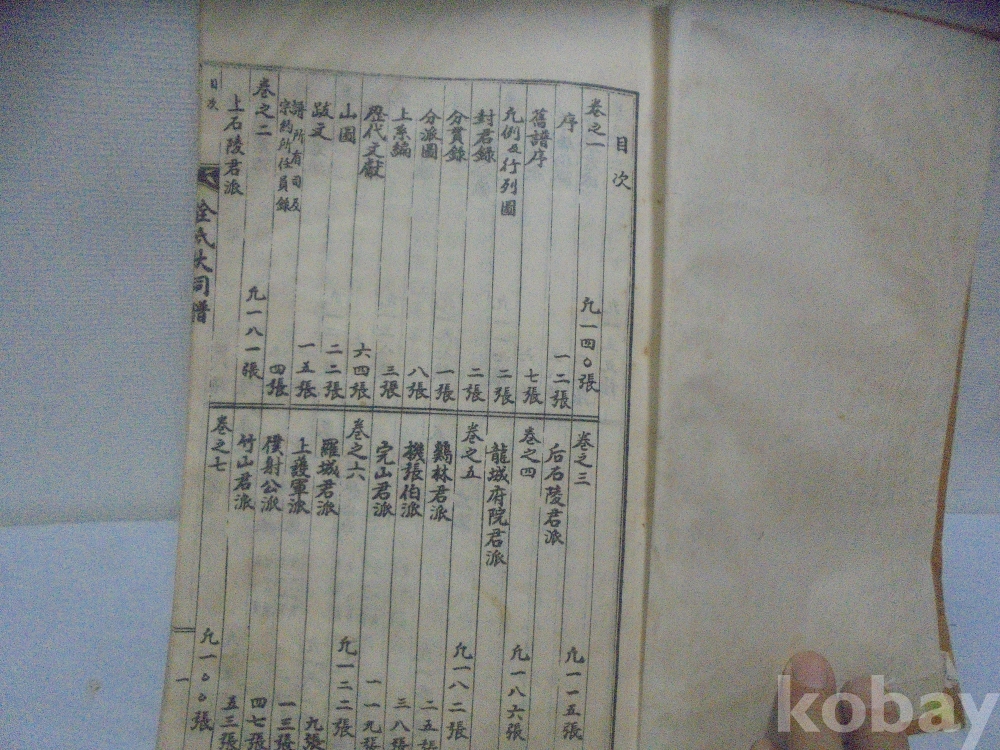 目次
卷之一 凢一四〇張
序 一二張
舊譜序 七張
凢例及行列圖 二張
封君錄 二張
分貫錄 一張
分派圖 八張
上系編 三張
歷代文獻 六四張
山圖 二二張
跋文 一五張
譜所有司及
宗約所任員錄 四張
卷之二 凢一八一張
上石陵君派
目次
全氏大同譜
卷之三 凢一一五張
后石陵君派
卷之四 凢一八六張
龍城府院君派
卷之五 凢一八二張
鷄林君派 二五張
機張伯派 三八張
完山君派 一一九張
卷之六 凢一二二張
羅城君派 九張
上護軍派 一三張
僕射公派 四七張
竹山君派 五三張
卷之七 凢一〇〇張
一
kobay